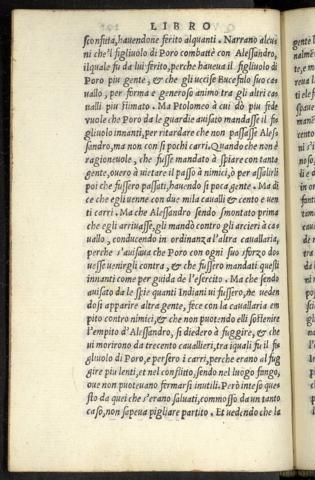 LIBRO
sconfitta, havendone ferito alquanti. Narrano alcu
ni che'l figliuolo di Poro combattè con Alessandro,
il quale fu da lui ferito, perche haveua il figliuolo di
Poro piu gente, & che gli uccise Bucefalo suo ca
uallo, per forma e generoso animo tra gli altri ca
ualli piu stimato. Ma Ptolomeo à cui dò piu fede
vuole che Poro da le guardie auisato mandasse il fi
gliuolo innanti, per ritardare che non passasse Ales
sandro, ma non con si pochi carri. Quando che non è
ragioneuole, che fusse mandato à spiare con tanta
gente, ouero à vietare il passo à nimici, ò per assalirli
poi che fussero passati, hauendo si poca gente. Ma di
ce che egli uenne con due mila cavalli & cento e uen
ti carri. Ma che Alessandro sendo smontato prima
che egli arriuasse, gli mandò contro gli arcieri à ca
uallo, conducendo in ordinanza l'altra cauallaria,
perche s'auisaua che Poro con ogni suo sforzo do
uesse venirgli contra, & che fussero mandati questi
innanti come per guida de l'esercito. Ma che sendo
auisato da le spie quanti Indiani ui fussero, ne ueden
dosi apparire altra gente, fece con la cauallaria em
pito contro nimici, & che non puotendo elli sostenire
l'empito d'Alessandro, si diedero à fuggire, & che
ui morirono da trecento cauallieri, tra iquali fu il fi
gliuolo di Poro, e persero i carri, perche erano al fug
gire piu lenti, et nel conflitto, sendo nel luogo fango,
oue non puoteuano fermarsi inutili. Però inteso que
sto da quei che s'erano saluati, commosso da un tanto
caso, non sapeua pigliare partito. Et uedendo che la